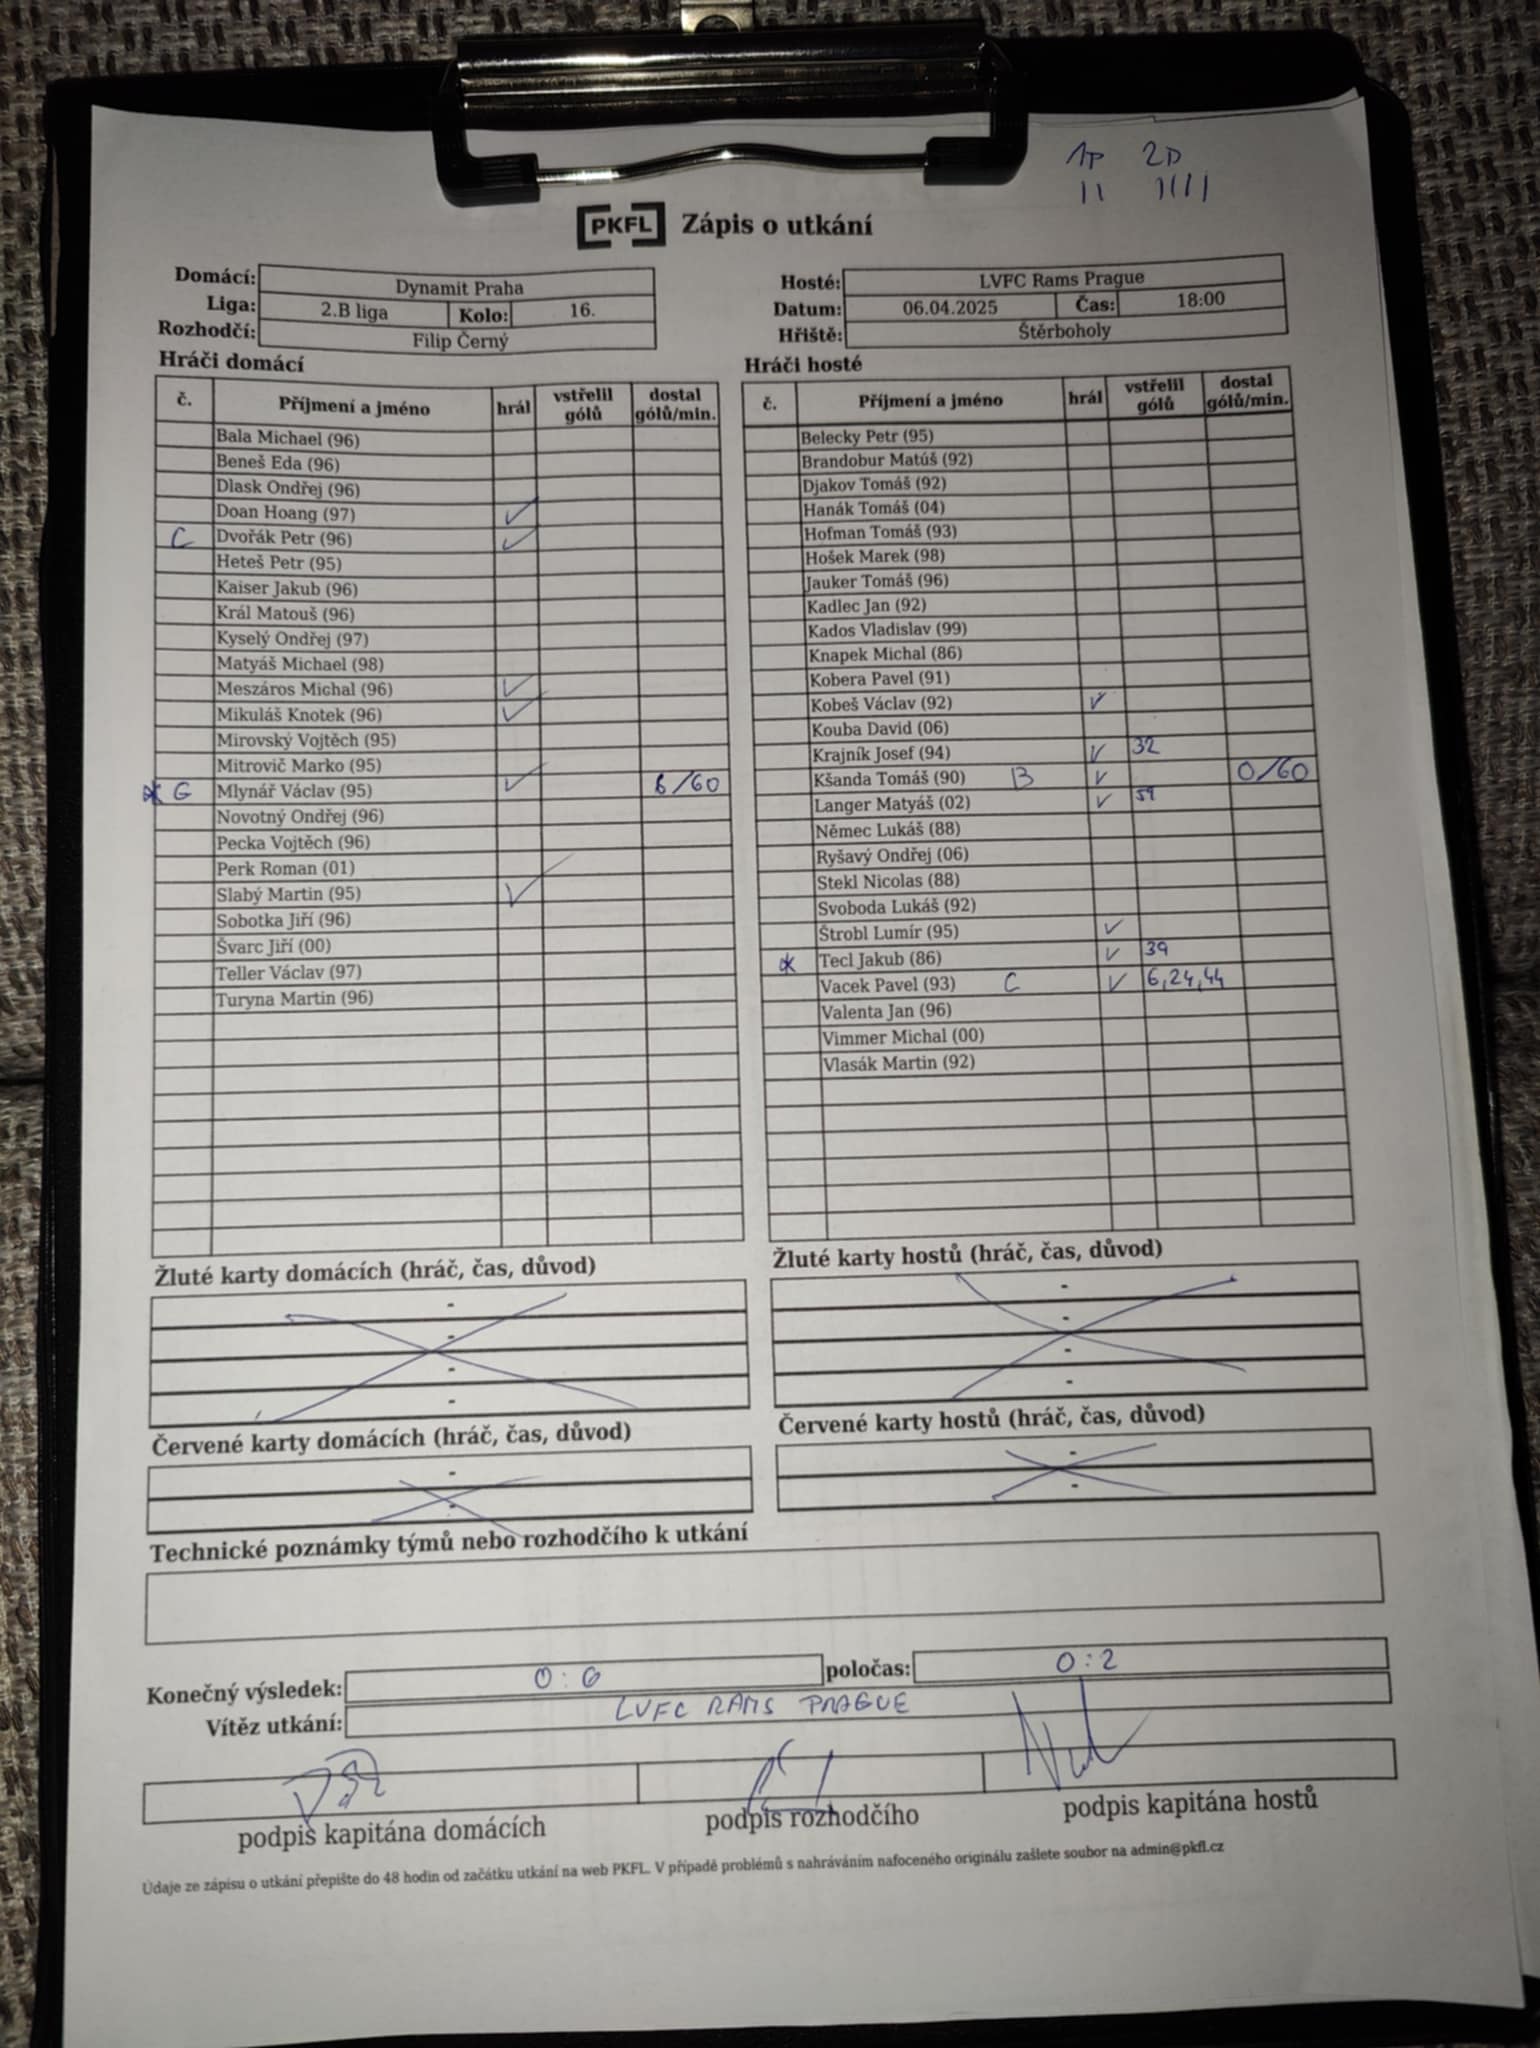 1P 2P
II IIII
PKFL Zápis o utkání
Domácí: Dynamit Praha
Liga: 2.B liga Kolo: 16.
Rozhodčí: Filip Černý
Hosté: LVFC Rams Prague
Datum: 06.04.2025 Čas: 18:00
Hřiště: Štěrboholy
Hráči domácí
č. Příjmení a jméno hrál vstřelil gólů dostal gólů/min.
Bala Michael (96)
Beneš Eda (96)
Dlask Ondřej (96)
Doan Hoang (97) ✓
C Dvořák Petr (96) ✓
Heteš Petr (95)
Kaiser Jakub (96)
Král Matouš (96)
Kyselý Ondřej (97)
Matyáš Michael (98)
Meszáros Michal (96) ✓
Mikuláš Knotek (96) ✓
Mirovský Vojtěch (95)
Mitrovič Marko (95)
* G Mlynář Václav (95) ✓ 6/60
Novotný Ondřej (96)
Pecka Vojtěch (96)
Perk Roman (01)
Slabý Martin (95) ✓
Sobotka Jiří (96)
Švarc Jiří (00)
Teller Václav (97)
Turyna Martin (96)
Hráči hosté
č. Příjmení a jméno hrál vstřelil gólů dostal gólů/min.
Belecky Petr (95)
Brandobur Matúš (92)
Djakov Tomáš (92)
Hanák Tomáš (04)
Hofman Tomáš (93)
Hošek Marek (98)
Jauker Tomáš (96)
Kadlec Jan (92)
Kados Vladislav (99)
Knapek Michal (86)
Kobera Pavel (91)
Kobeš Václav (92) ✓
Kouba David (06)
Krajník Josef (94) ✓ 32
Kšanda Tomáš (90) B ✓ 0/60
Langer Matyáš (02) ✓ 59
Němec Lukáš (88)
Ryšavý Ondřej (06)
Stekl Nicolas (88)
Svoboda Lukáš (92)
Štrobl Lumír (95) ✓
* Tecl Jakub (86) ✓ 39
Vacek Pavel (93) C ✓ 6,24,44
Valenta Jan (96)
Vimmer Michal (00)
Vlasák Martin (92)
Žluté karty domácích (hráč, čas, důvod)
-
-
-
-
Žluté karty hostů (hráč, čas, důvod)
-
-
-
-
Červené karty domácích (hráč, čas, důvod)
-
-
Červené karty hostů (hráč, čas, důvod)
-
-
Technické poznámky týmů nebo rozhodčího k utkání
Konečný výsledek: 0:6 poločas: 0:2
Vítěz utkání: LVFC RAMS PRAGUE
podpis kapitána domácích podpis rozhodčího podpis kapitána hostů
Údaje ze zápisu o utkání přepište do 48 hodin od začátku utkání na web PKFL. V případě problémů s nahráváním nafoceného originálu zašlete soubor na admin@pkfl.cz